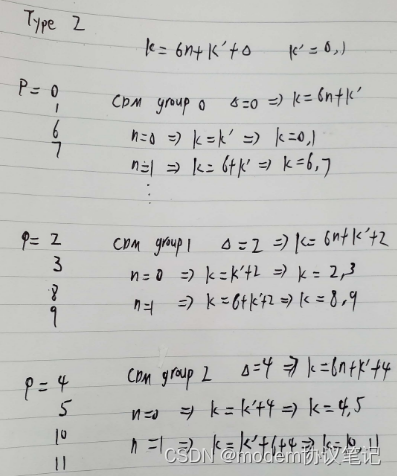 Type 2
k = 6n + k' + Δ k' = 0,1
P = 0 CDM group 0 Δ=0 => k = 6n+k'
1
6 n=0 => k = k' => k=0,1
7 n=1 => k = 6+k' => k=6,7
⋮
P = 2 CDM group 1 Δ=2 => k = 6n+k'+2
3 n=0 => k = k'+2 => k = 2,3
8
9 n=1 => k = 6+k'+2 => k = 8,9
P = 4 CDM group 2 Δ=4 => k = 6n+k'+4
5 n=0 => k = k'+4 => k=4,5
10 n=1 => k = k'+6+4 => k=10,11
11
CSDN @modem协议笔记